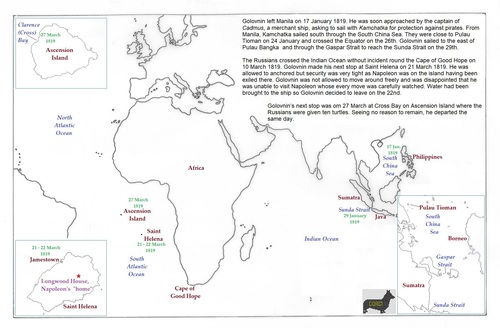 Clarence
(Cross)
Bay
27 March
1819
Ascension
Island
Golovnin left Manila on 17 January 1819. He was soon approached by the captain of
Cadmus, a merchant ship, asking to sail with Kamchatka for protection against pirates. From
Manila, Kamchatka sailed south through the South China Sea. They were close to Pulau
Tioman on 24 January and crossed the Equator on the 26th. Golovnin sailed to the east of
Pulau Bangka and through the Gaspar Strait to reach the Sunda Strait on the 29th.
The Russians crossed the Indian Ocean without incident round the Cape of Good Hope on
10 March 1819. Golovnin made his next stop at Saint Helena on 21 March 1819. He was
allowed to anchored but security was very tight as Napoleon was on the island having been
exiled there. Golovnin was not allowed to move around freely and was disappointed that he
was unable to visit Napoleon whose every move was carefully watched. Water had been
brought to the ship so Golovnin decided to leave on the 22nd.
Golovnin's next stop was om 27 March at Cross Bay on Ascension Island where the
Russians were given ten turtles. Seeing no reason to remain, he departed the
same day.
North
Atlantic
Ocean
17 Jan
1819
South
China
Sea
Philippines
Africa
27 March
1819
Ascension
Island
Saint
Helena
21 - 22 March
1819
South
Atlantic
Ocean
Cape of
Good Hope
Indian Ocean
Sumatra
Sunda Strait
29 January
1819
Java
Pulau Tioman
South
China
Sea
Borneo
Gaspar
Strait
Sumatra
Sunda Strait
21 - 22 March
1819
Jamestown
Longwood House,
Napoleon's "home"
Saint Helena